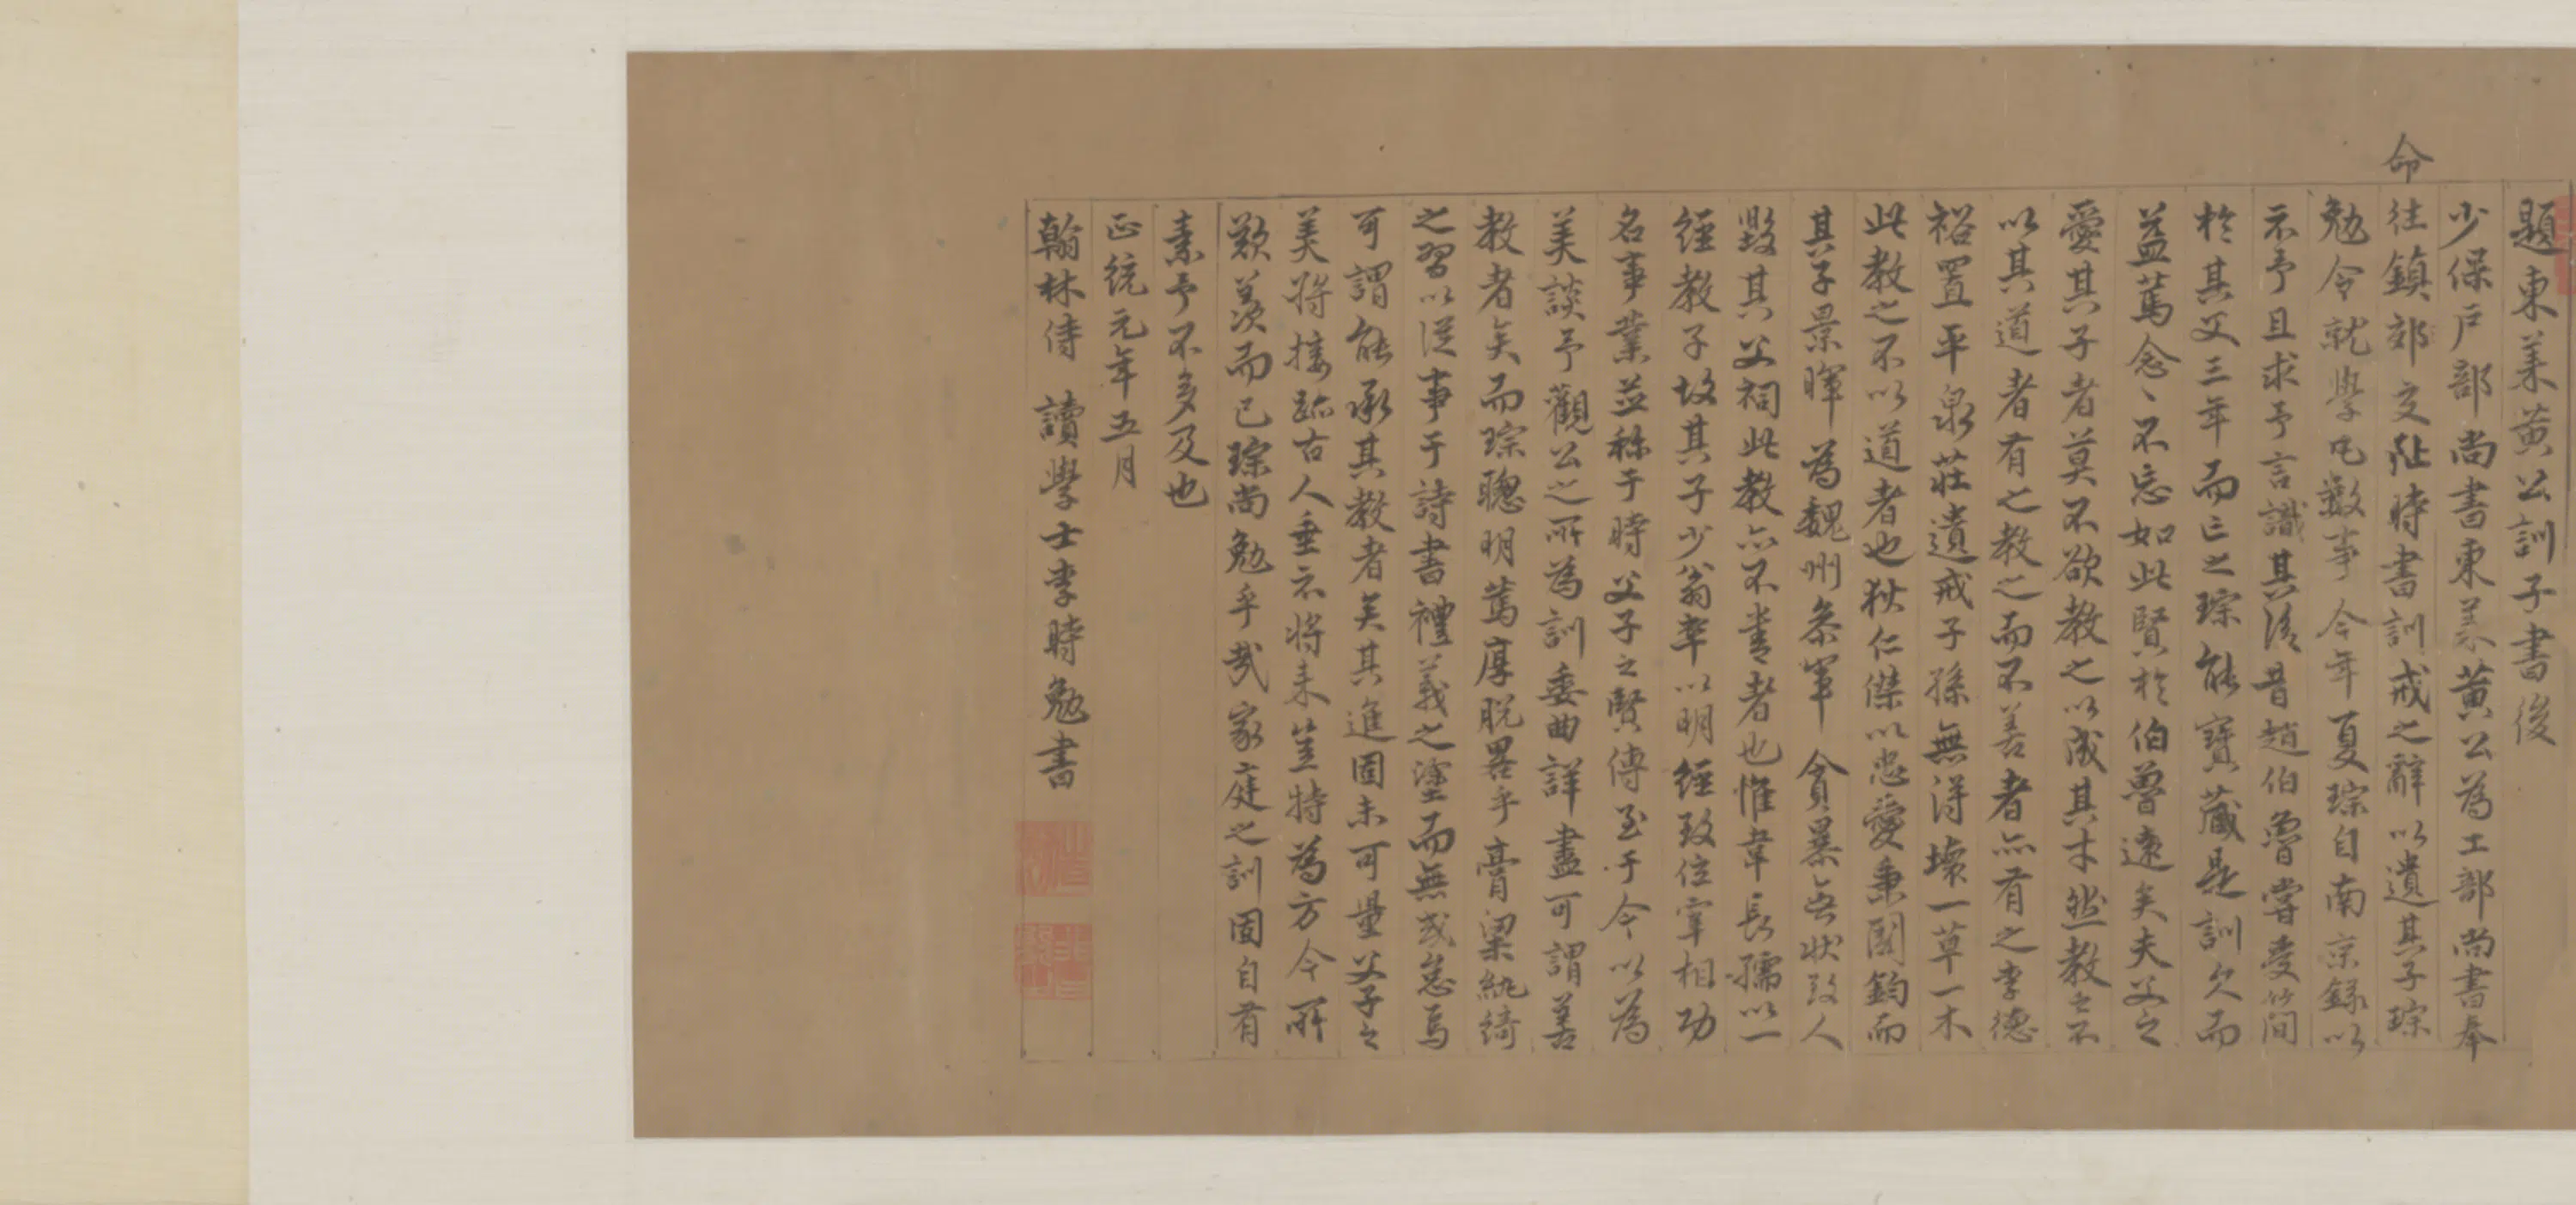 題東萊黃公訓子書後
少保戶部尚書東萊黃公為工部尚書奉
命往鎮郊交阯時書訓戒之辭以遺其子琮
勉令就學凡數事今年夏琮自南京錄以
示予且求予言識其後昔趙伯魯嘗受簡
於其父三年而亡之琮能寶藏是訓久而
益篤念、不忘如此賢於伯魯遠矣夫父之
愛其子者莫不欲教之以成其才然教之不
以其道者有之教之而不善者亦有之李德
裕置平泉莊遺戒子孫無得壞一草一木
此教之不以道者也狄仁傑以忠愛秉國鈞而
其子景暉為魏州參軍貪暴無狀致人
毀其父祠此教亦不善者也惟韋長孺以一
經教子故其子少翁率以明經致位宰相功
名事業並稱于時父子之賢傳至于今以為
美談予觀公之所為訓委曲詳盡可謂善
教者矣而琮聰明篤厚脫畧乎膏粱紈綺
之習以從事于詩書禮義之塗而無或怠焉
可謂能承其教者矣其進固未可量父子之
美將接跡古人垂示將來豈特為方今所
歎羨而已琮尚勉乎哉家庭之訓固自有
素予不多及也
正統元年五月
翰林侍讀學士李時勉書